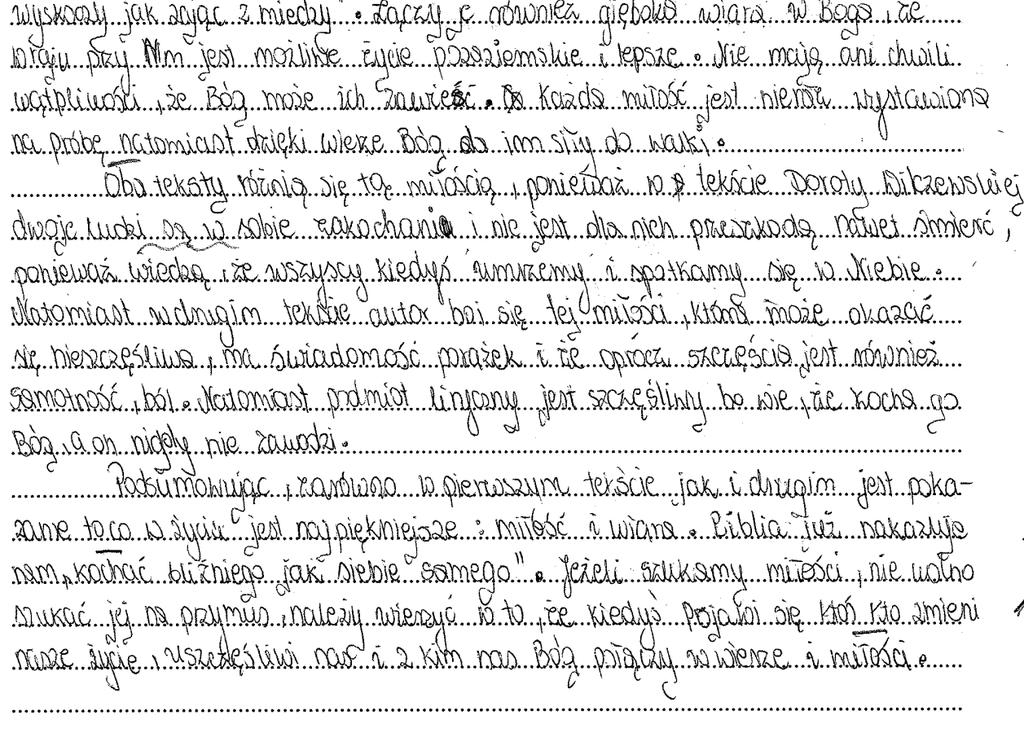 wyskoczy jak zając z miedzy". Łączy je również głęboka wiara w Boga, że
w raju przy Nim jest możliwe życie pozaziemskie i lepsze. Nie mają ani chwili
wątpliwości, że Bóg może ich zawieść. Każda miłość jest nieraz wystawiona
na próbę natomiast dzięki wierze Bóg da im siły do walki.
Oba teksty różnią się tą miłością, ponieważ w tekście Doroty Dilczewskiej
dwoje ludzi są w sobie zakochani i nie jest dla nich przeszkodą nawet śmierć,
ponieważ wiedzą, że wszyscy kiedyś umrzemy i spotkamy się w Niebie.
Natomiast w drugim tekście autor boi się tej miłości, która może okazać
się nieszczęśliwa, ma świadomość porażek i że oprócz szczęścia jest również
samotność, ból. Natomiast podmiot liryczny jest szczęśliwy bo wie, że kocha go
Bóg, a on nigdy nie zawodzi.
Podsumowując, zarówno w pierwszym tekście jak i drugim jest poka-
zane to co w życiu jest najpiękniejsze: miłość i wiara. Biblia już nakazuje
nam „kochać bliźniego jak siebie samego". Jeżeli szukamy miłości, nie wolno
szukać jej na przymus, należy wierzyć w to, że kiedyś pojawi się ktoś kto zmieni
nasze życie, uszczęśliwi nas i z kim nas Bóg połączy w wierze i miłości.